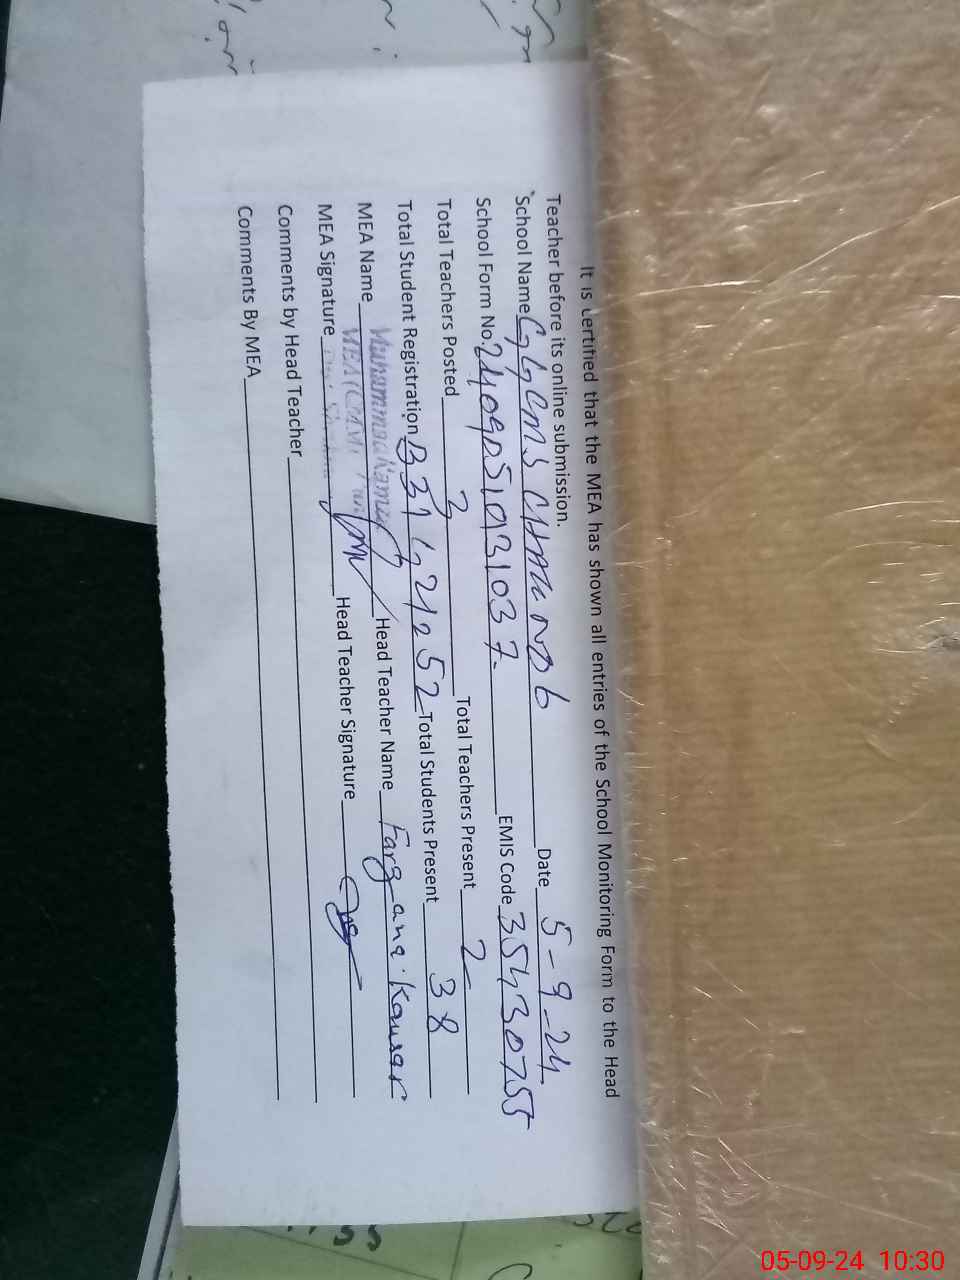 It is certified that the MEA has shown all entries of the School Monitoring Form to the Head
Teacher before its online submission.
School Name GGCMS Date 5-9-24
School Form No. 24090519131037. EMIS Code 35430755
Total Teachers Posted 3 Total Teachers Present 2
Total Student Registration B31 G21 = 52 Total Students Present 38
MEA Name Muhammad Head Teacher Name Farzana Kausar
MEA Signature Head Teacher Signature
Comments by Head Teacher
Comments By MEA
05-09-24 10:30